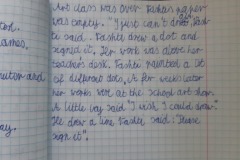 Art class was over. Vashti's paper
was empty. "I just can't draw" Vashti
te said. Vashti drew a dot and
signed it. Her work was above her
teacher's desk. Vashti painted a lot
of different dots. A few weeks later
her works were at the school art show.
A little boy said "I wish I could draw".
He drew a line. Vashti said: "Please
sign it".
ames.
and
ay.